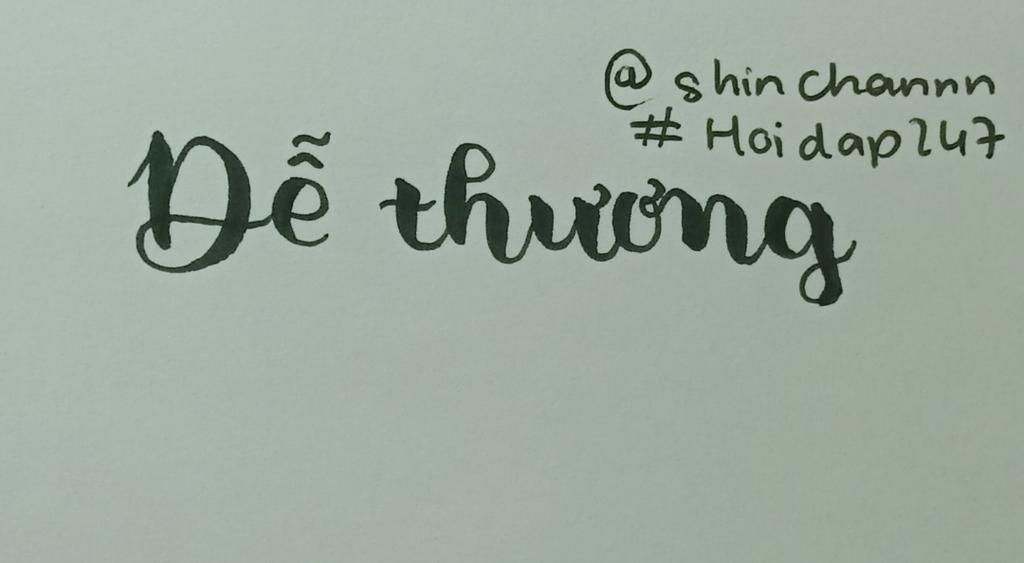 @shinchannn
#Hoidap247
Dễ thương